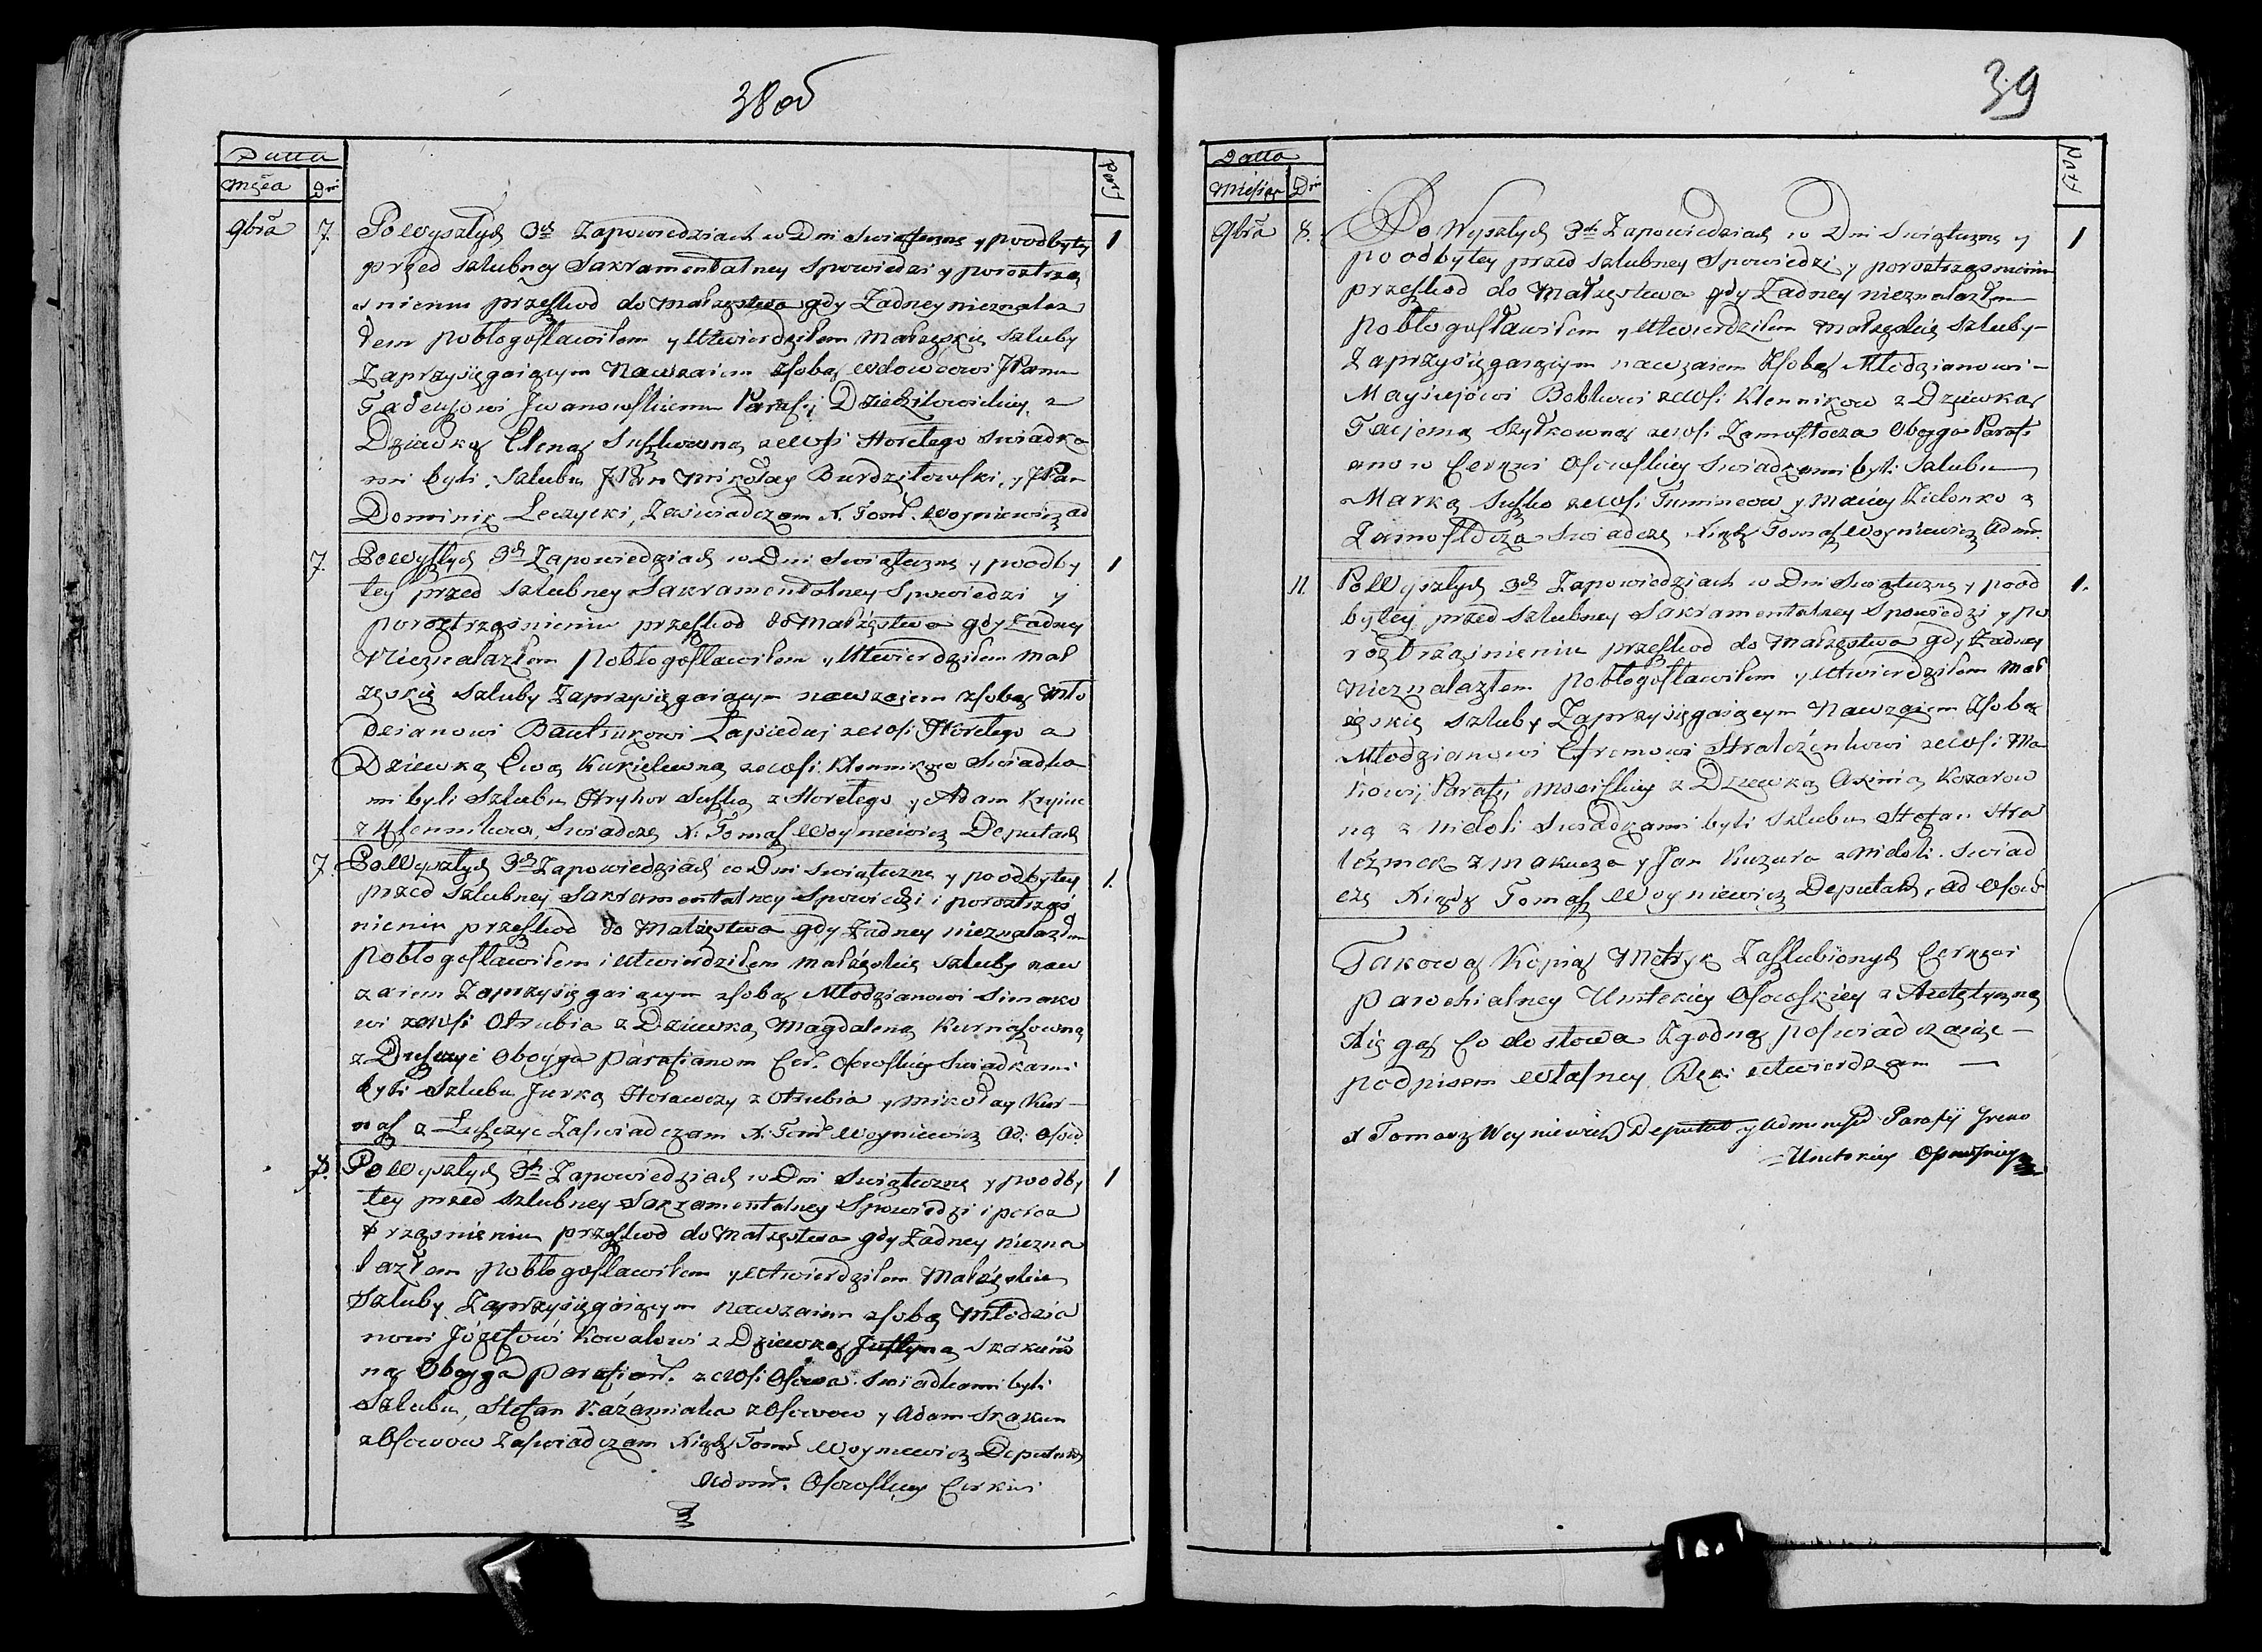 38 об
Datta
Msca Dni
9bra 7. Po Wyszłych 3ch Zapowiedziach w Dni Swiąteczne y po odbytey 1
przed szlubney Sakramentalney Spowiedzi y poroztrzą
snieniu przeszkod do Małzęstwa gdy Zadney nieznalaz
łem pobłogosławiłem y Utwierdziłem Małzęskie Szluby
Zaprzysięgaiącym Nawzaiem zsobą Wdowcowi JPanu
Tadeuszowi Jwanowskiemu Parafij Dziedziłowickiey z
Dziewką Eleną Suszkowną ze Wsi Horelego Swiadka
mi byli Szlubu JPan Mikołay Burdziłowski, y JPan
Dominik Leczycki, Zaswiadczam X. Tom. Woyniewicz ad
7. Po Wyszłych 3ch Zapowiedziach w Dni Swiąteczne y poodby 1
tey przed Szlubney Sakramentalney Spowiedzi y
poroztrząsnieniu przeszkod do Małżęstwa gdy Zadney
Nieznalazłem pobłogosławiłem y Utwierdziłem Mał
zęskie Szluby Zaprzysięgaiącym nawzaiem zsobą Mło
dzianowi Bautrukowi Łapieduj ze Wsi Horelego a
Dziewką Ewą Kurilewną ze Wsi Klennikow Swiadka
mi byli Szlubu Hryhor Suszko z Horelego y Adam
z Klennikow, Swiadczę X. Tomasz Woyniewicz Deputach
7. Po Wyszłych 3ch Zapowiedziach w Dni Swiąteczne y po odbytey 1.
przed Szlubney Sakramentalney Spowiedzi i poroztrząs
nieniu przeszkod do Małzęstwa gdy Zadney nieznalazłem
pobłogosławiłem i utwierdziłem Małżęskie Szluby naw
zaiem Zaprzysięgaiącym zsobą Młodzianowi Simako
wi ze Wsi Otrubia z Dziewką Magdaleną Kurnaszowną
z Obojga Parafianom Cer. Osowskiey Swiadkami
byli Szlubu Jurka z Otrubia y Mikołay Kur-
nasz z Łuszczyc Zaswiadczam X. Tom. Woyniewicz Ad. Osow.
8. Po Wyszłych 3ch Zapowiedziach w Dni Swiąteczne y poodby 1
tey przed Szlubney Sakramentalney Spowiedzi i poroz
trząsnieniu przeszkod do Małzęstwa gdy Zadney niezna
lazłem pobłogosławiłem y Utwierdziłem Małżęskie
Szluby Zaprzysięgaiącym nawzaiem zsobą Młodzia
nowi Józefowi Kowalowi z Dziewką Justyną
ną Obojga Parafian. ze Wsi Osowa. Swiadkami byli
Szlubu, Stefan Kaźamiaka z Osowow y Adam Skakun
z Osowow Zaswiadczam Xiądz Tom. Woyniewicz Deputach
Adm. Osowskiey Cerkwi
39
Datta
Miesiąc Dni
9bra 8. Po Wyszłych 3ch Zapowiedziach w Dni Swiąteczne y 1
po odbytey przed szlubney Spowiedzi y poroztrząsnieniu
przeszkod do Małzęstwa gdy Zadney nieznalazłem
pobłogosławiłem y Utwierdziłem Małzęskie Szluby-
Zaprzysięgaiącym nawzaiem zsobą Młodzianowi-
Maysiejowi Bobkowi ze Wsi Klennikow z Dziewką
Tacjeną Szyłkowną ze Wsi Zamosztocza Obojga Parafi
anow Cerkwi Osowskiey Swiadkami byli Szlubu
Marka Suszko ze Wsi y Maciey Zielonko z
Zamosztocza Swiadczę Xiądz Tomasz Woyniewicz Adm.
11. Po Wyszłych 3ch Zapowiedziach w Dni Swiąteczne y pood 1.
bytey przed Szlubney Sakramentalney Spowiedzi y po
roztrząśnieniu przeszkod do Małzęstwa gdy Zadney
nieznalazłem pobłogosławiłem y Utwierdziłem Mał
żęskie Szluby Zaprzysięgaiącym Nawzaiem Zsobą
Młodzianowi Efremowi ze Wsi Ma
Parafij z Dziewką Axinią Kozarow
ną z Nidoli Swiadkami byli Szlubu Stefan Stra
z y Jan z Nidoli. Swiad
czę Xiądz Tomasz Woyniewicz Deputach, ad Osow
Takową Kopią Metryk Zaszlubionych Cerkwi
parochialney Unitskiey Osowskiey z Autętyczną
Xięgą Co do słowa Zgodną poswiadczaiąc-
podpisem własney Ręki utwierdzam —
X Tomasz Woyniewicz Deputat y Administ Parafij Greko
=Unitskiey Osowskiey